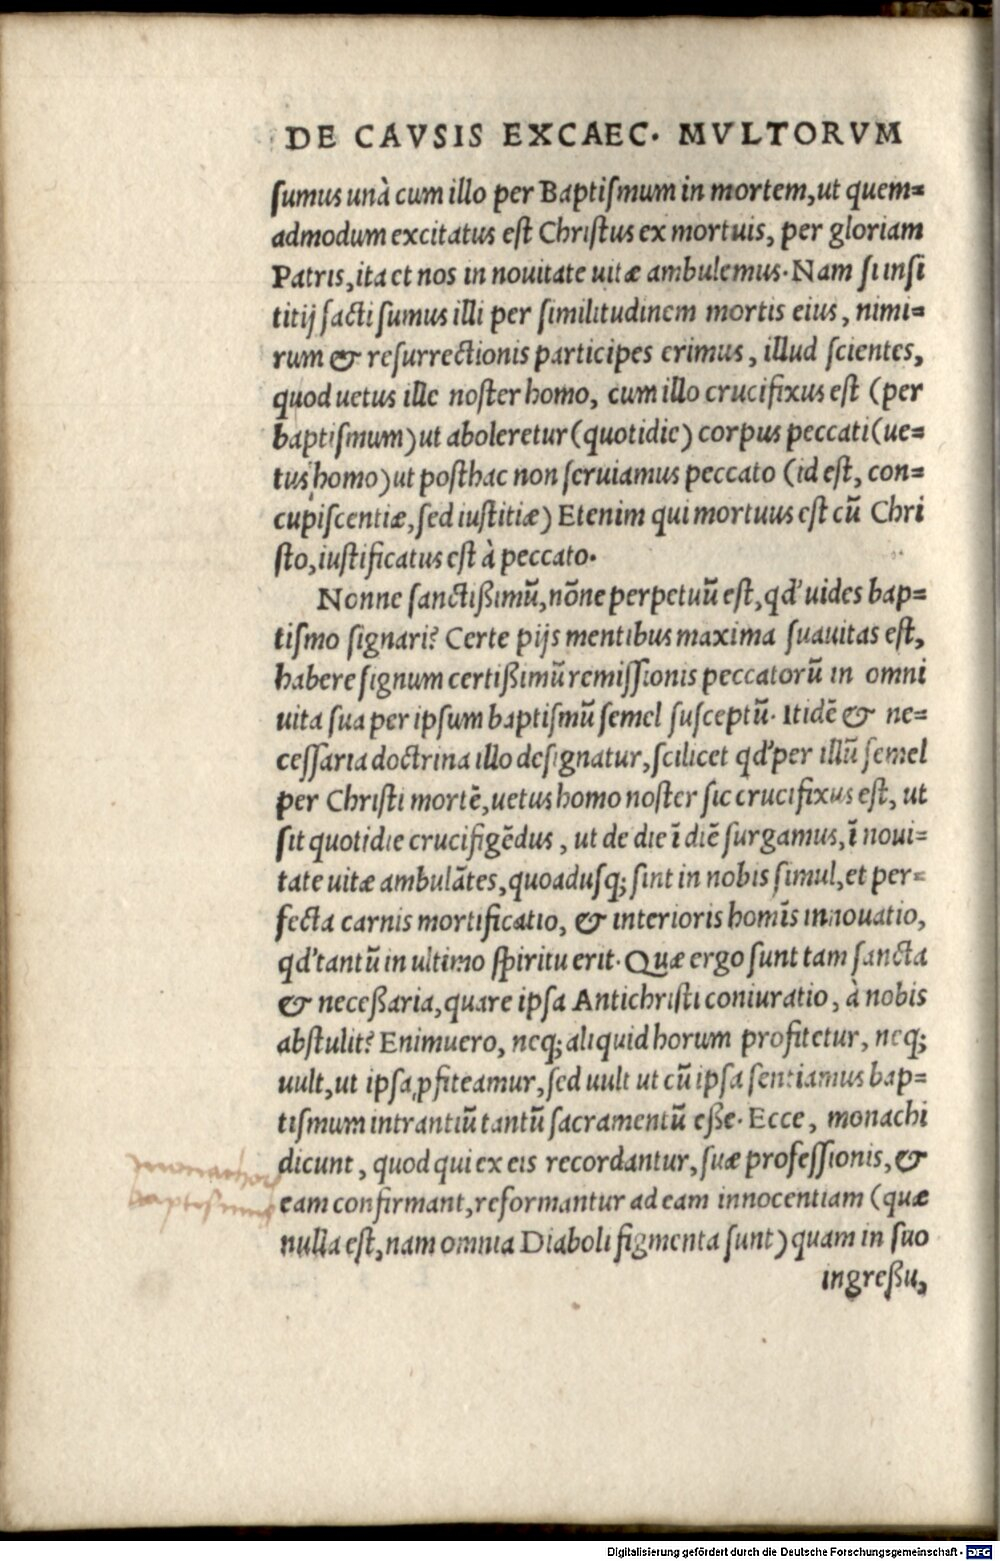 DE CAVSIS EXCAEC. MVLTORVM
ſumus unà cum illo per Baptiſmum in mortem, ut quem=
admodum excitatus eſt Chriſtus ex mortuis, per gloriam
Patris, ita et nos in nouitate uitæ ambulemus. Nam ſi inſi
titij facti ſumus illi per ſimilitudinem mortis eius, nimi=
rum & reſurrectionis participes erimus, illud ſcientes,
quod uetus ille noſter homo, cum illo crucifixus eſt (per
baptiſmum) ut aboleretur (quotidie) corpus peccati (ue=
tus homo) ut poſthac non ſeruiamus peccato (id eſt, con=
cupiſcentiæ, ſed iuſtitiæ) Etenim qui mortuus eſt cũ Chri
ſto, iuſtificatus eſt à peccato.
Nonne ſanctißimũ, nõne perpetuũ eſt, qd' uides bap=
tiſmo ſignari? Certe pijs mentibus maxima ſuauitas eſt,
habere ſignum certißimũ remiſſionis peccatorũ in omni
uita ſua per ipſum baptiſmũ ſemel ſuſceptũ. Itidẽ & ne=
ceſſaria doctrina illo deſignatur, ſcilicet qd' per illũ ſemel
per Chriſti mortẽ, uetus homo noſter ſic crucifixus eſt, ut
ſit quotidie crucifigẽdus, ut de die ĩ diẽ ſurgamus, ĩ noui=
tate uitæ ambulãtes, quoaduſq; ſint in nobis ſimul, et per=
fecta carnis mortificatio, & interioris homĩs innouatio,
qd' tantũ in ultimo ſpiritu erit. Quæ ergo ſunt tam ſancta
& neceßaria, quare ipſa Antichriſti coniuratio, à nobis
abſtulit? Enimuero, neq; aliquid horum profitetur, neq;
uult, ut ipſa ꝓfiteamur, ſed uult ut cũ ipſa ſentiamus bap=
tiſmum intrantiũ tantũ ſacramentũ eße. Ecce, monachi
dicunt, quod qui ex eis recordantur, ſuæ profeſſionis, &
eam confirmant, reformantur ad eam innocentiam (quæ
nulla eſt, nam omnia Diaboli figmenta ſunt) quam in ſuo
ingreßu,
baptiſmus
Digitalisierung gefördert durch die Deutsche Forschungsgemeinschaft - DFG